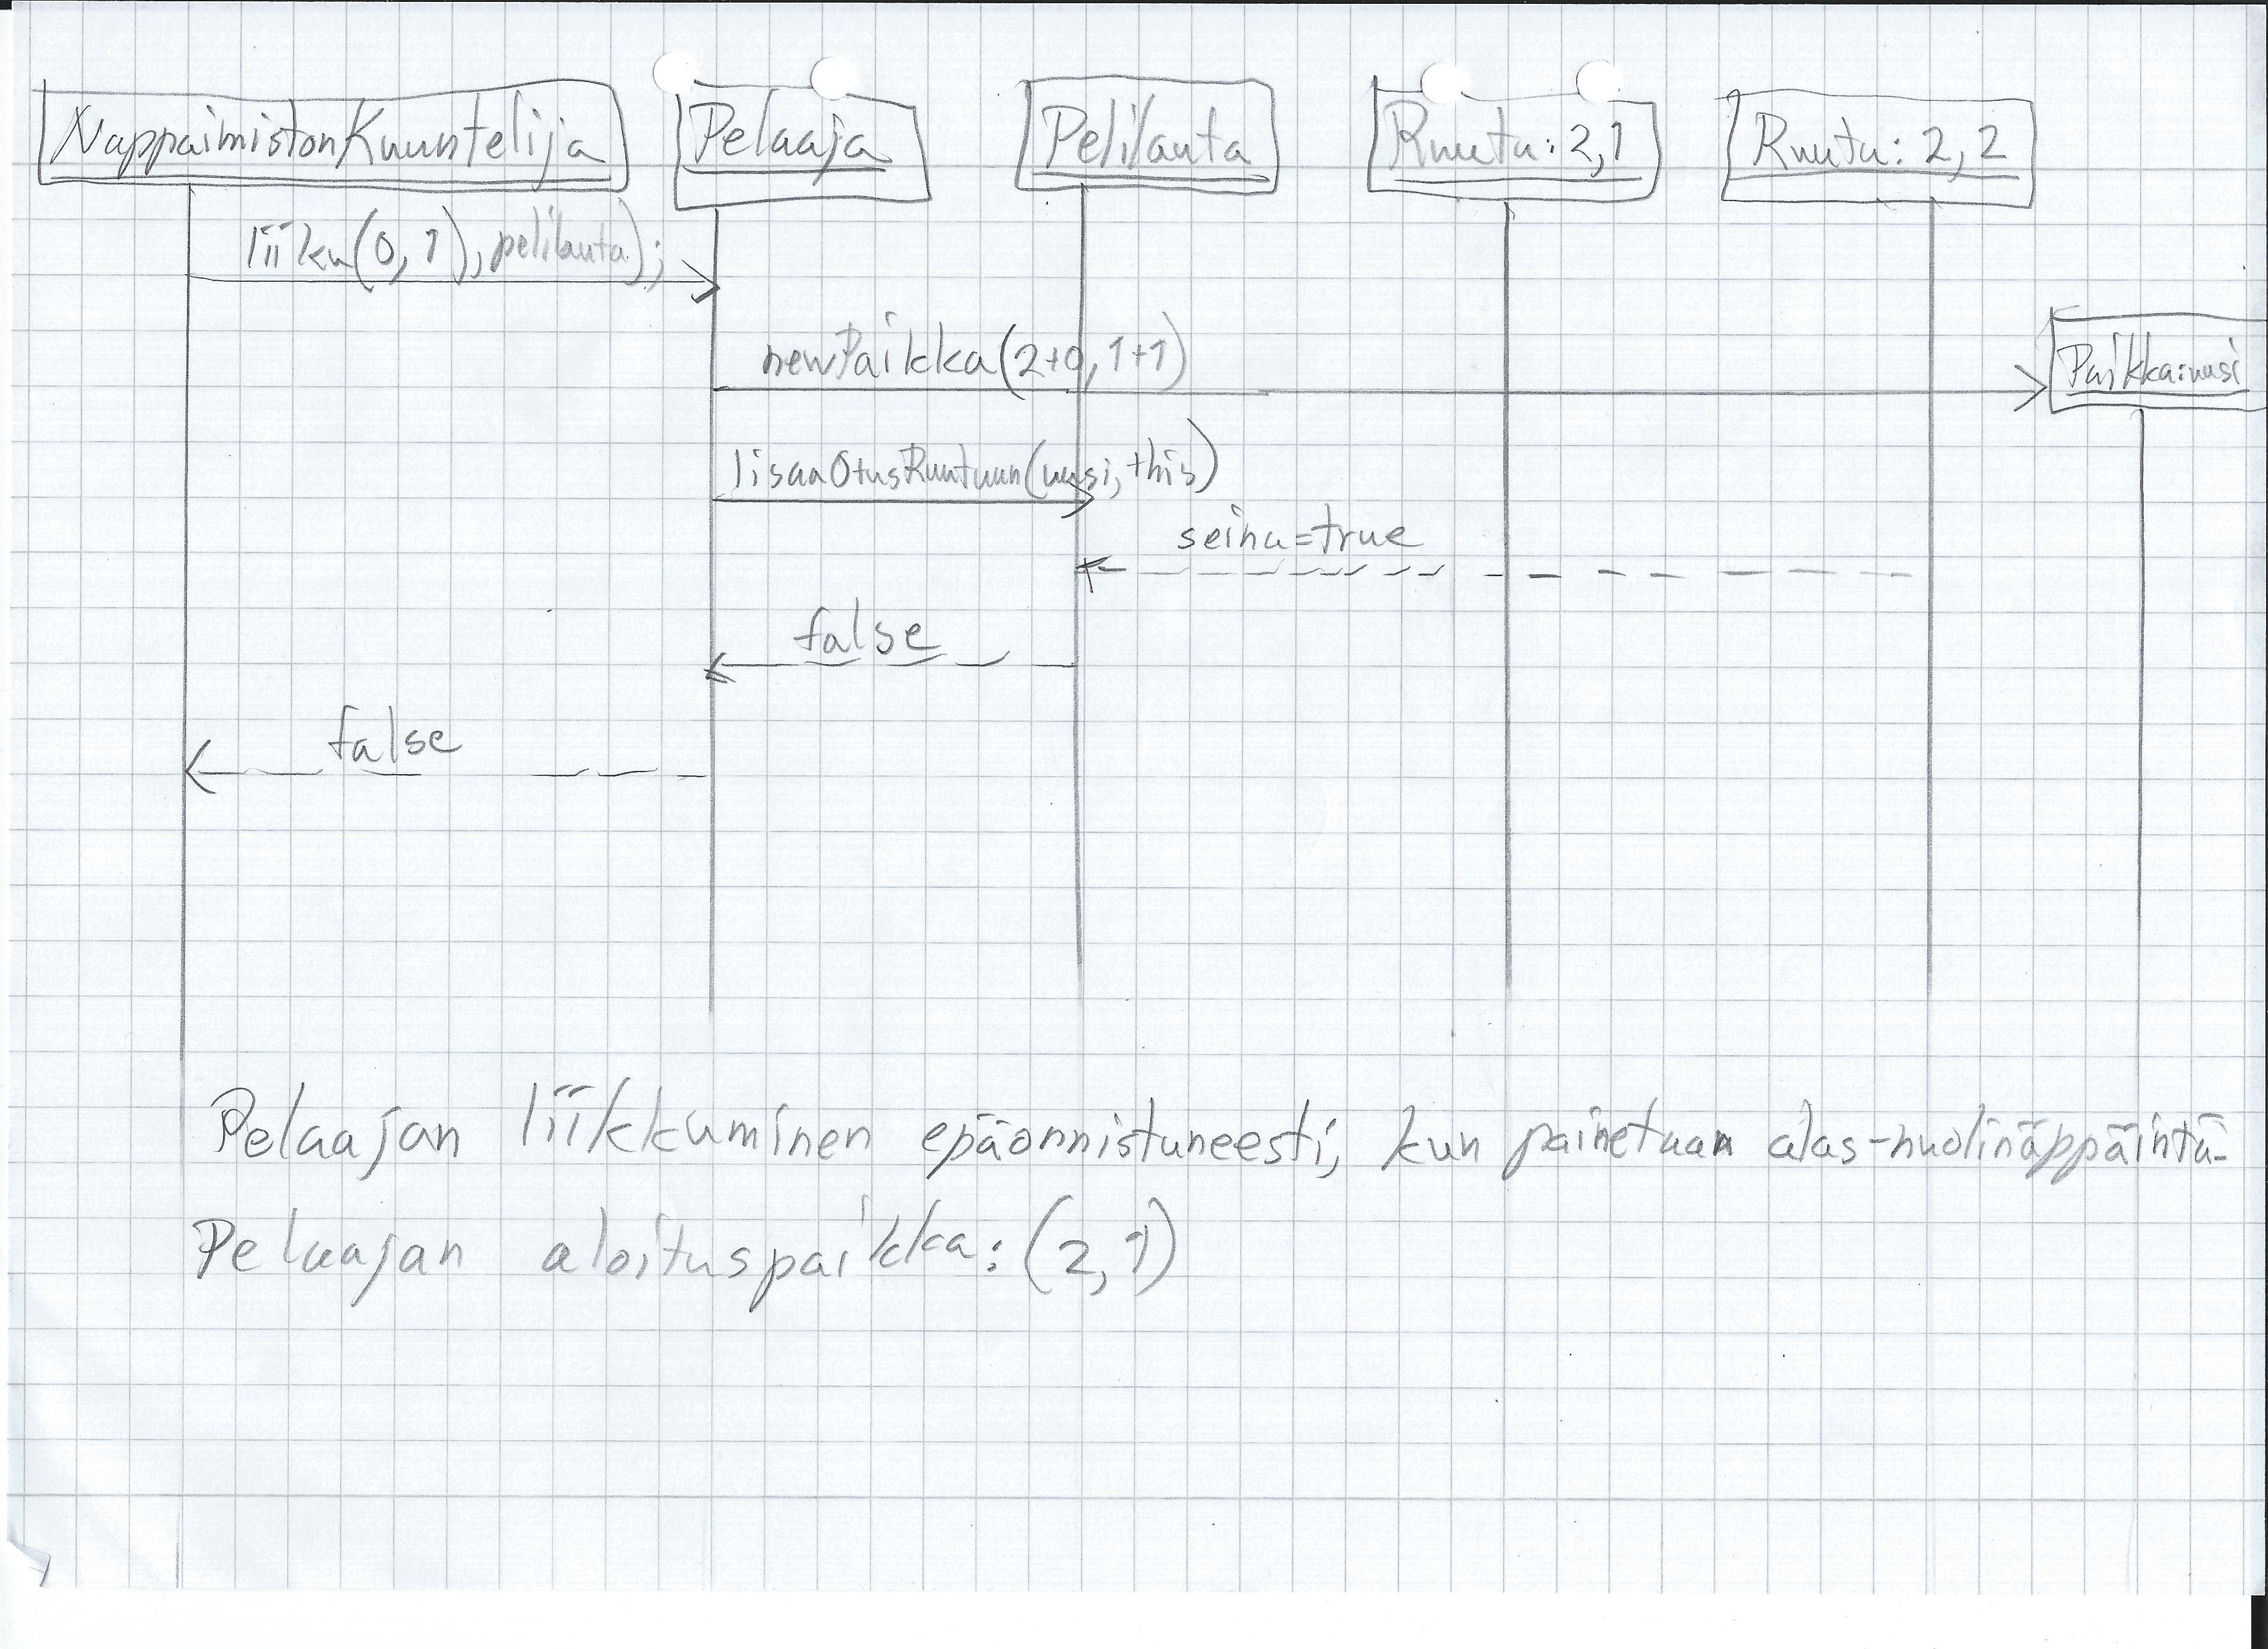 NappaimistonKuuntelija
Pelaaja
Pelilauta
Ruutu: 2,1
Ruutu: 2,2
liiku(0,1), pelilauta);
newPaikka(2+0, 1+1)
Paikka:uusi
lisaaOtusRuutuun(uusi, this)
seina=true
false
false
Pelaajan liikkuminen epäonnistuneesti, kun painetaan alas-nuolinäppäintä.
Pelaajan aloituspaikka: (2,1)